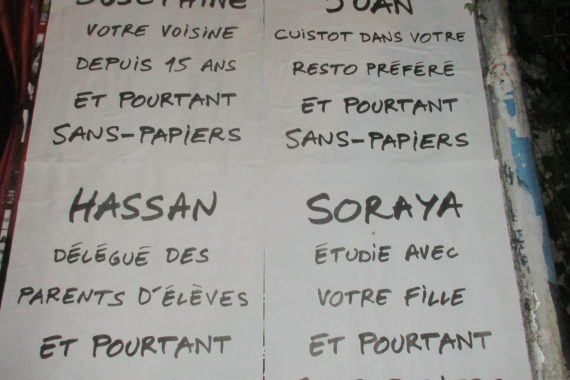 JOSÉPHINE
VOTRE VOISINE
DEPUIS 15 ANS
ET POURTANT
SANS-PAPIERS
JUAN
CUISTOT DANS VOTRE
RESTO PRÉFÉRÉ
ET POURTANT
SANS-PAPIERS
HASSAN
DÉLÉGUÉ DES
PARENTS D'ÉLÈVES
ET POURTANT
SORAYA
ÉTUDIE AVEC
VOTRE FILLE
ET POURTANT